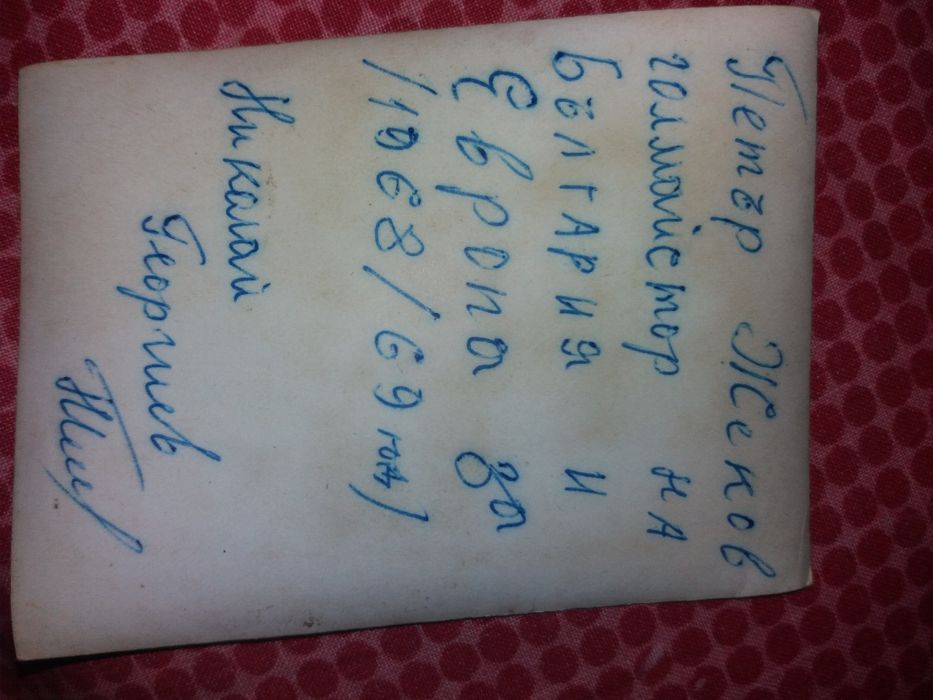 Петър Жеков
голмайстор на
България и
Европа за
/1968/69 год/
Николай
Георгиев